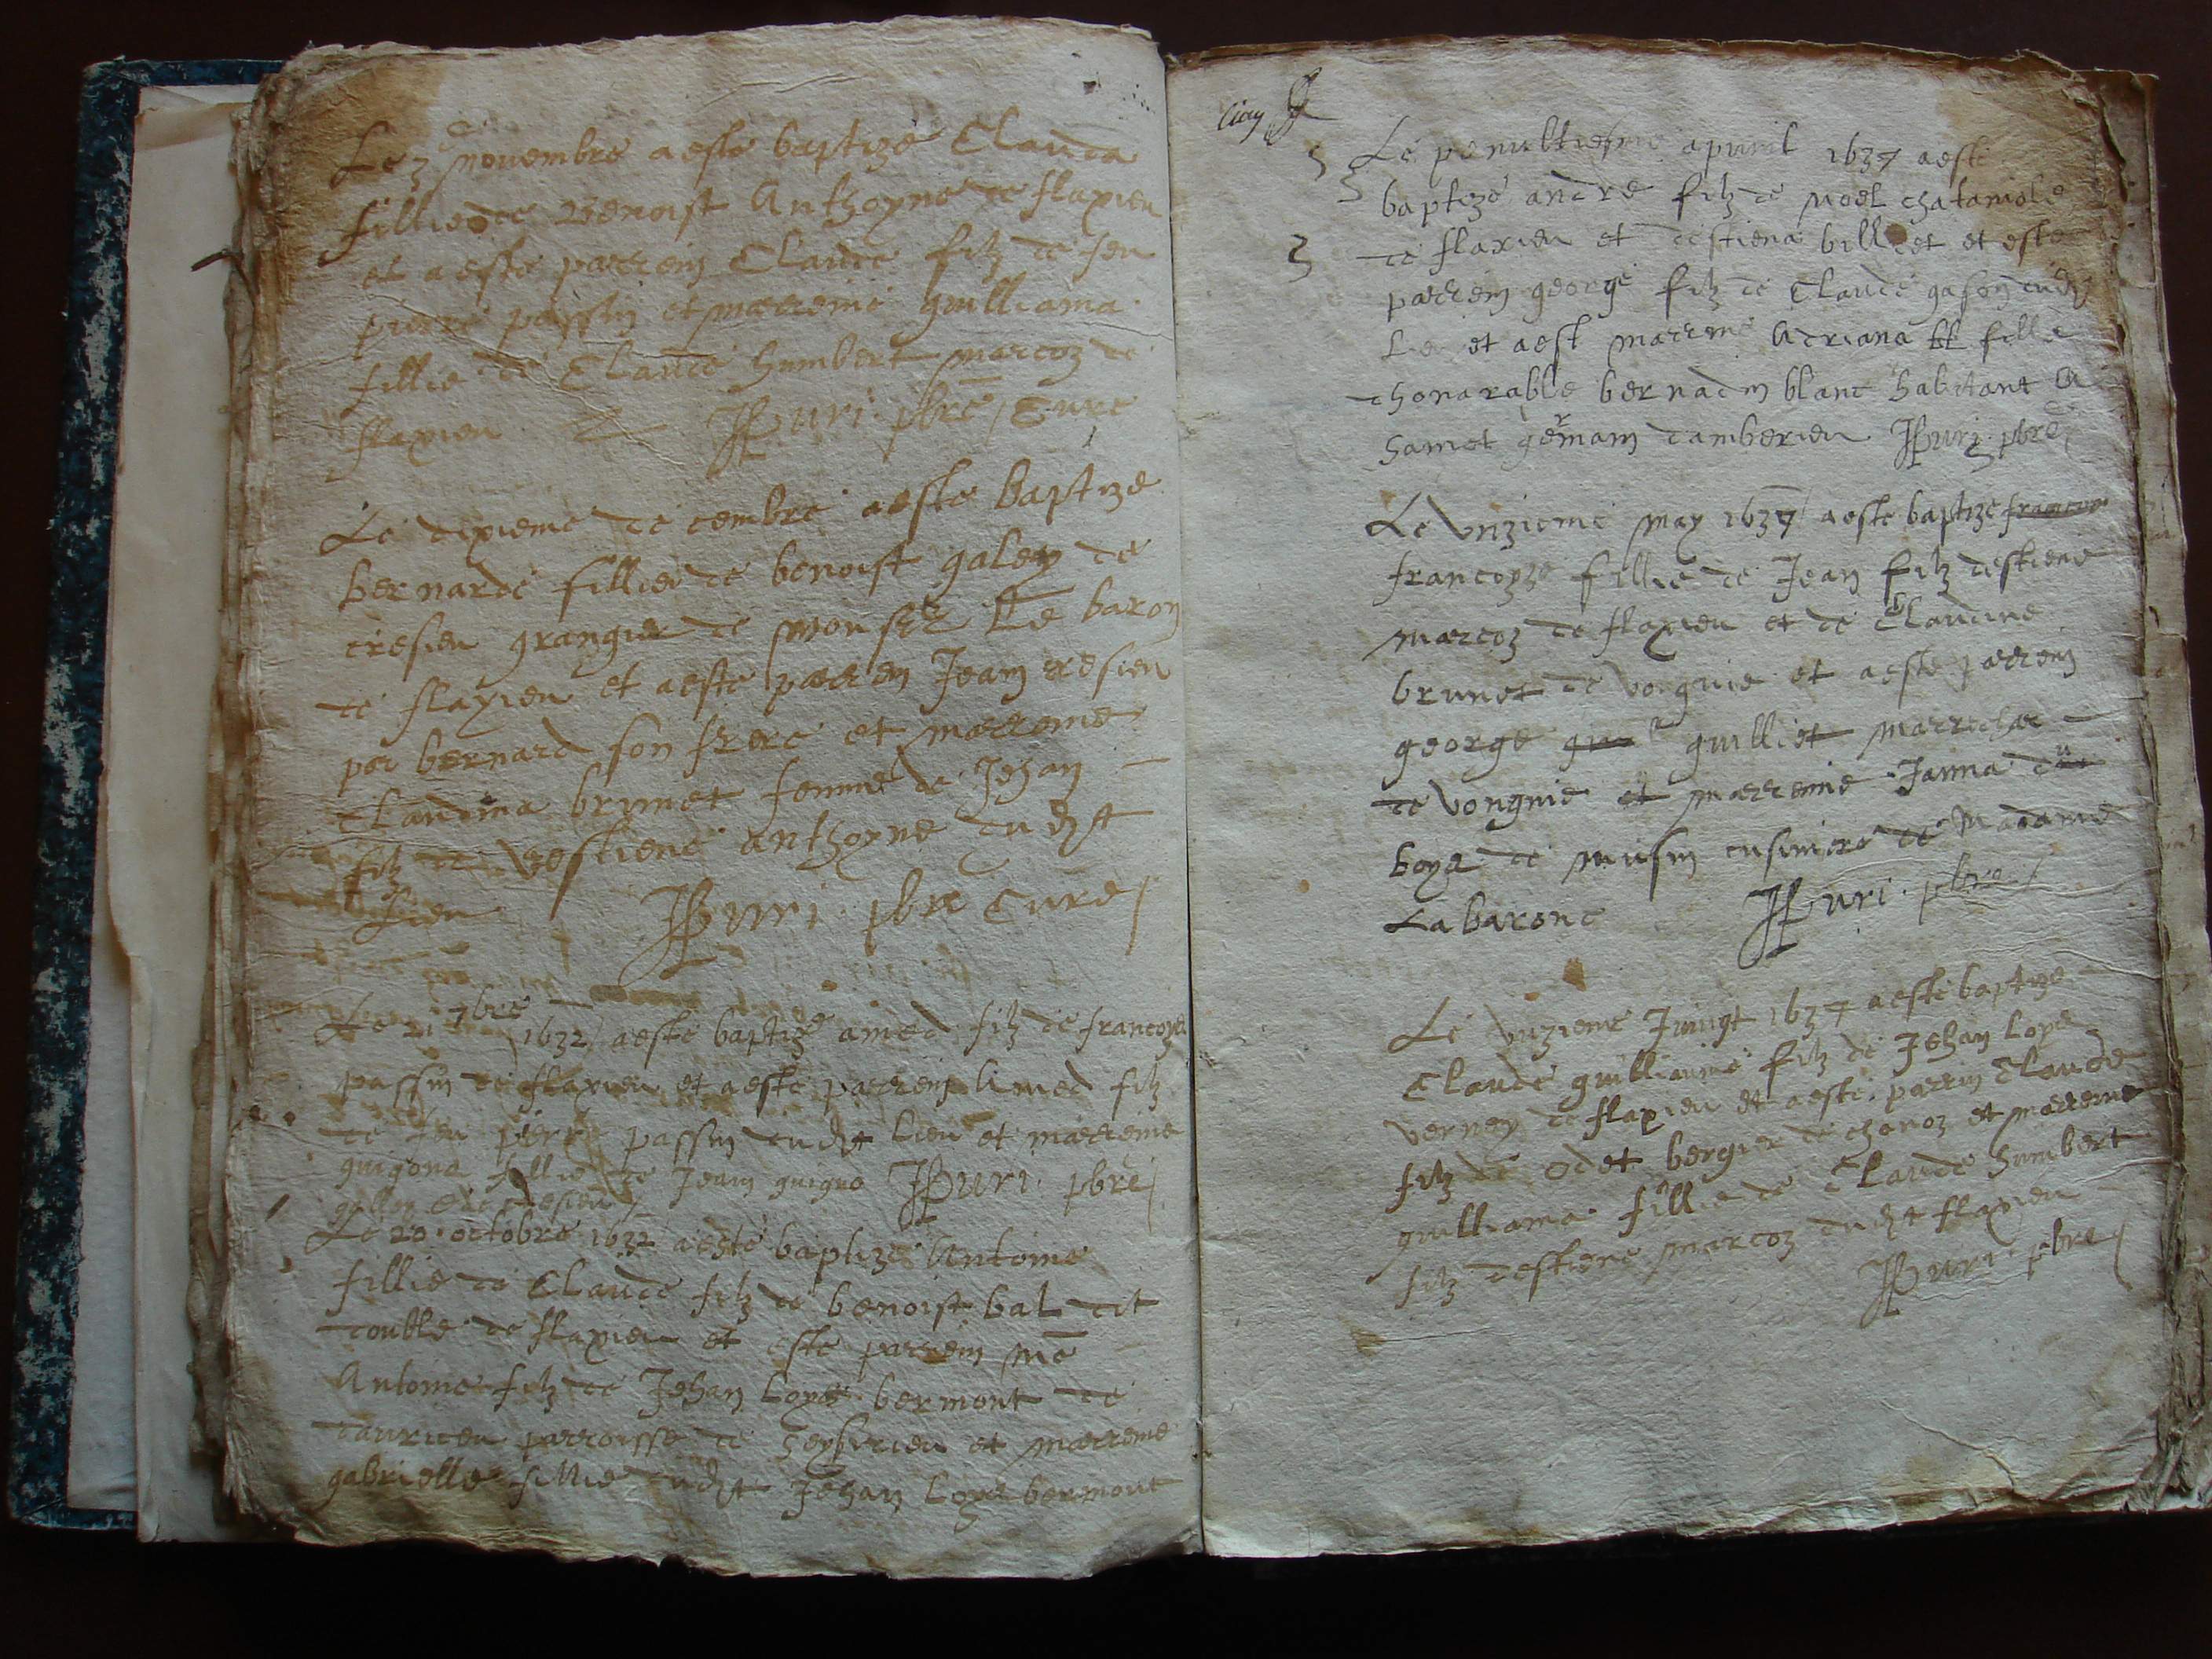 Le 3 novembre a este baptize Clauda
fillie de Benoist Anthoyne de flaxieu
et a este parrein Claude filz de feu
pierre passin et marreine guilliama
fillie de Claude humbert marcoz de
flaxieu JPuri pbre Cure
Le dixieme decembre a este baptize
bernarde fillie de benoist galey de
cresieu grangier de monsr Le baron
de flaxieu et a este parrein Jean cresieu
par bernard son frere et marreine
Claudina brunet femme de Jehan
filz destiene anthoyne dudit
lieu JPuri pbre Cure
Le 21 7bre 1632 a este baptize amed filz de francoys
passin de flaxieu et a este parrein Amed filz
de feu pierre passin dudit Lieu et marreine
guigona fillie de Jean guigno JPuri pbre
galley de cresieu
Le 20 octobre 1632 a este baptize Antoine
fillie de Claude filz de benoist bal dit
double de flaxieu et este parrein me
Antoine filz de Jehan Loys bermont de
parroisse de Seyserieu et marreine
gabrielle fillie dudit Jehan Loys bermont
Le penultiesme apvril 1637 a este
baptize andre filz de noel
de flaxieu et destiena billiet et este
parrein george filz de Claude gason dudit
Lie et a est marreine Adriana fille
dhonarable bernadin blanc habitant a
Sainct germain damberieu JPuri pbre
Le unzieme may 1637 a este baptize
francoyze fillie de Jean filz destiene
marcoz de flaxieu et de Claudine
brunet de vongnie et a este parrein
george guilliet
de vongnie et marreine Janna du
boys de musin cusiniere de Madame
La barone JPuri pbre
Le unzieme Juingt 1637 a este baptize
Claude guilliaume filz de Jehan Loys
verney de flaxieu et a este parrin Claude
filz de Odet bergier de chanoz et marreine
guilliama fillie de Claude humbert
filz destiene marcoz dudit flaxieu
JPuri pbre